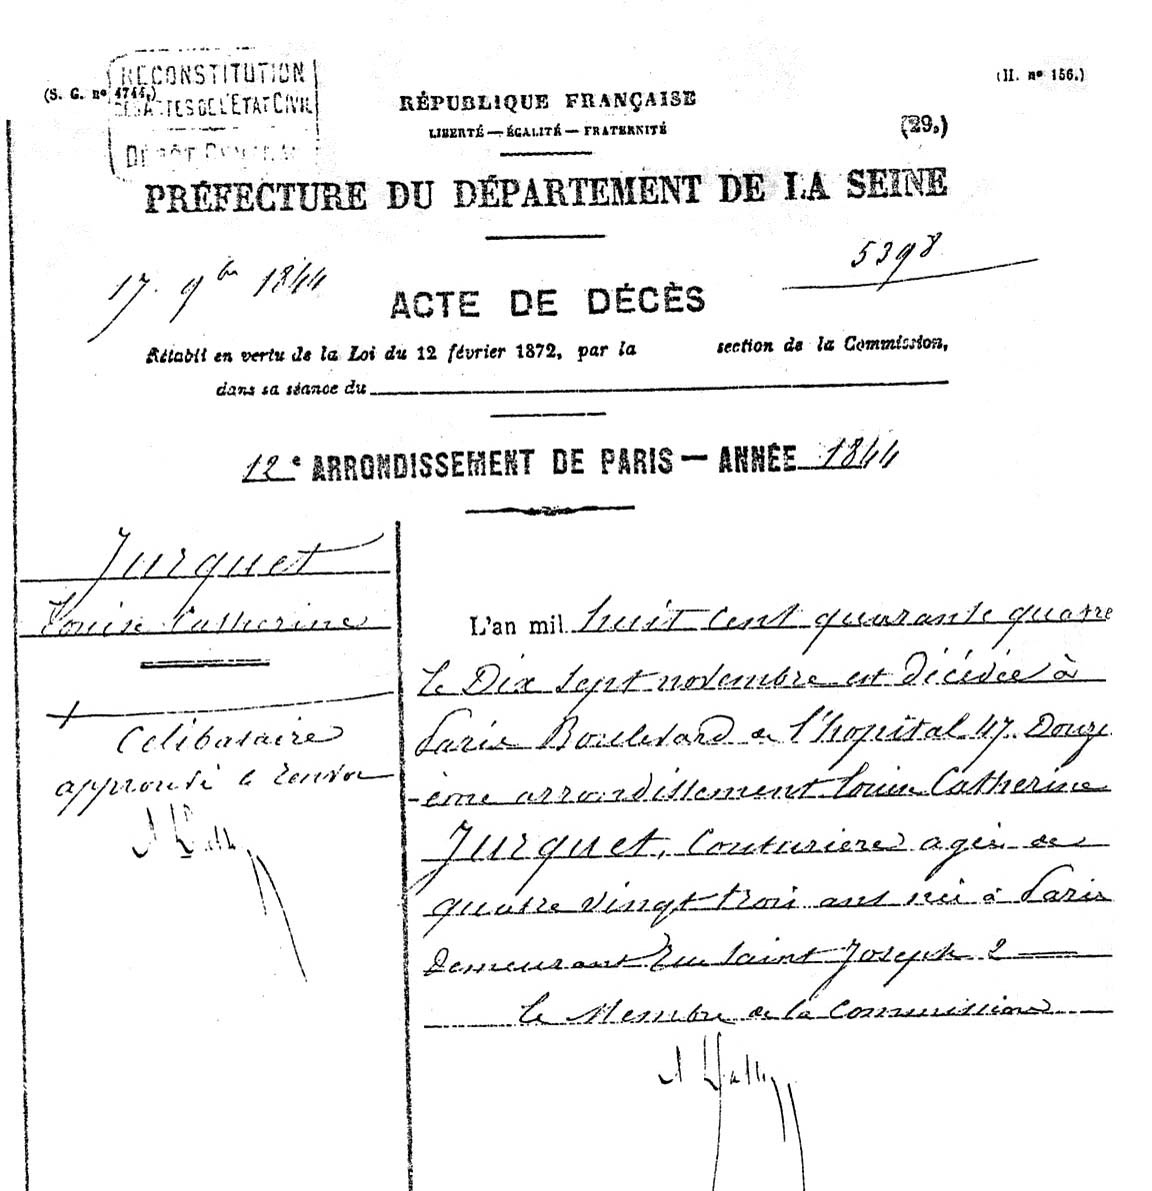 RECONSTITUTION
DES ACTES DE L'ÉTAT CIVIL
DÉPÔT
(S. G. nº 4744.)
(H. nº 156.)
RÉPUBLIQUE FRANÇAISE
LIBERTÉ — ÉGALITÉ — FRATERNITÉ
(29.)
PRÉFECTURE DU DÉPARTEMENT DE LA SEINE
17. 9bre 1844
5398
ACTE DE DÉCÈS
Rétabli en vertu de la Loi du 12 février 1872, par la section de la Commission,
dans sa séance du
12e ARRONDISSEMENT DE PARIS — ANNÉE 1844
Jurquet
Louise Catherine
Célibataire
approuvé le renvoi
L'an mil huit cent quarante quatre
le Dix sept novembre est décédée à
Paris Boulevard de l'hopital 47. Douzi
-ème arrondissement Louise Catherine
Jurquet, Couturière agée de
quatre vingt trois ans née à Paris
demeurant Rue Saint Joseph 2
Le Membre de la Commission